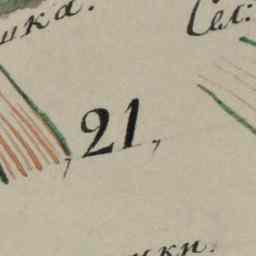 шка.
Сел:
, 21,
ики.